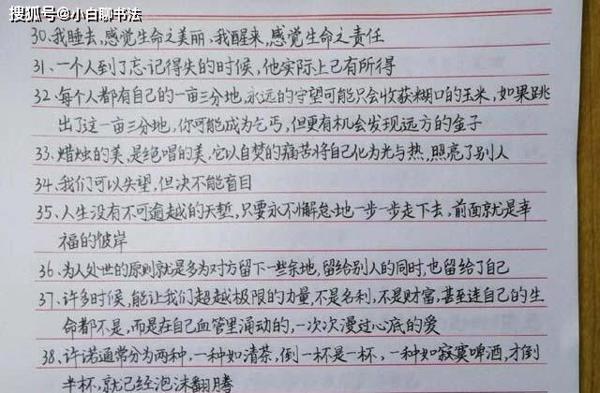 搜狐号@小白聊书法
30、我睡去,感觉生命之美丽、我醒来,感觉生命之责任
31、一个人到了忘记得失的时候,他实际上已有所得
32、每个人都有自己的一亩三分地,永远的守望可能只会收获糊口的玉米,如果跳
出了这一亩三分地,你可能成为乞丐,但更有机会发现远方的金子
33、蜡烛的美,是绝唱的美,它以自焚的痛苦将自己化为光与热,照亮了别人
34、我们可以失望,但决不能盲目
35、人生没有不可逾越的天堑,只要永不懈怠地一步一步走下去,前面就是幸
福的彼岸
36、为人处世的原则就是多为对方留下一些余地,留给别人的同时,也留给了自己
37、许多时候,能让我们超越极限的力量,不是名利,不是财富,甚至连自己的生
命都不是,而是在自己血管里涌动的,一次次漫过心底的爱
38、许诺通常分为两种,一种如清茶,倒一杯是一杯,一种如寂寞啤酒,才倒
半杯,就已经泡沫翻腾